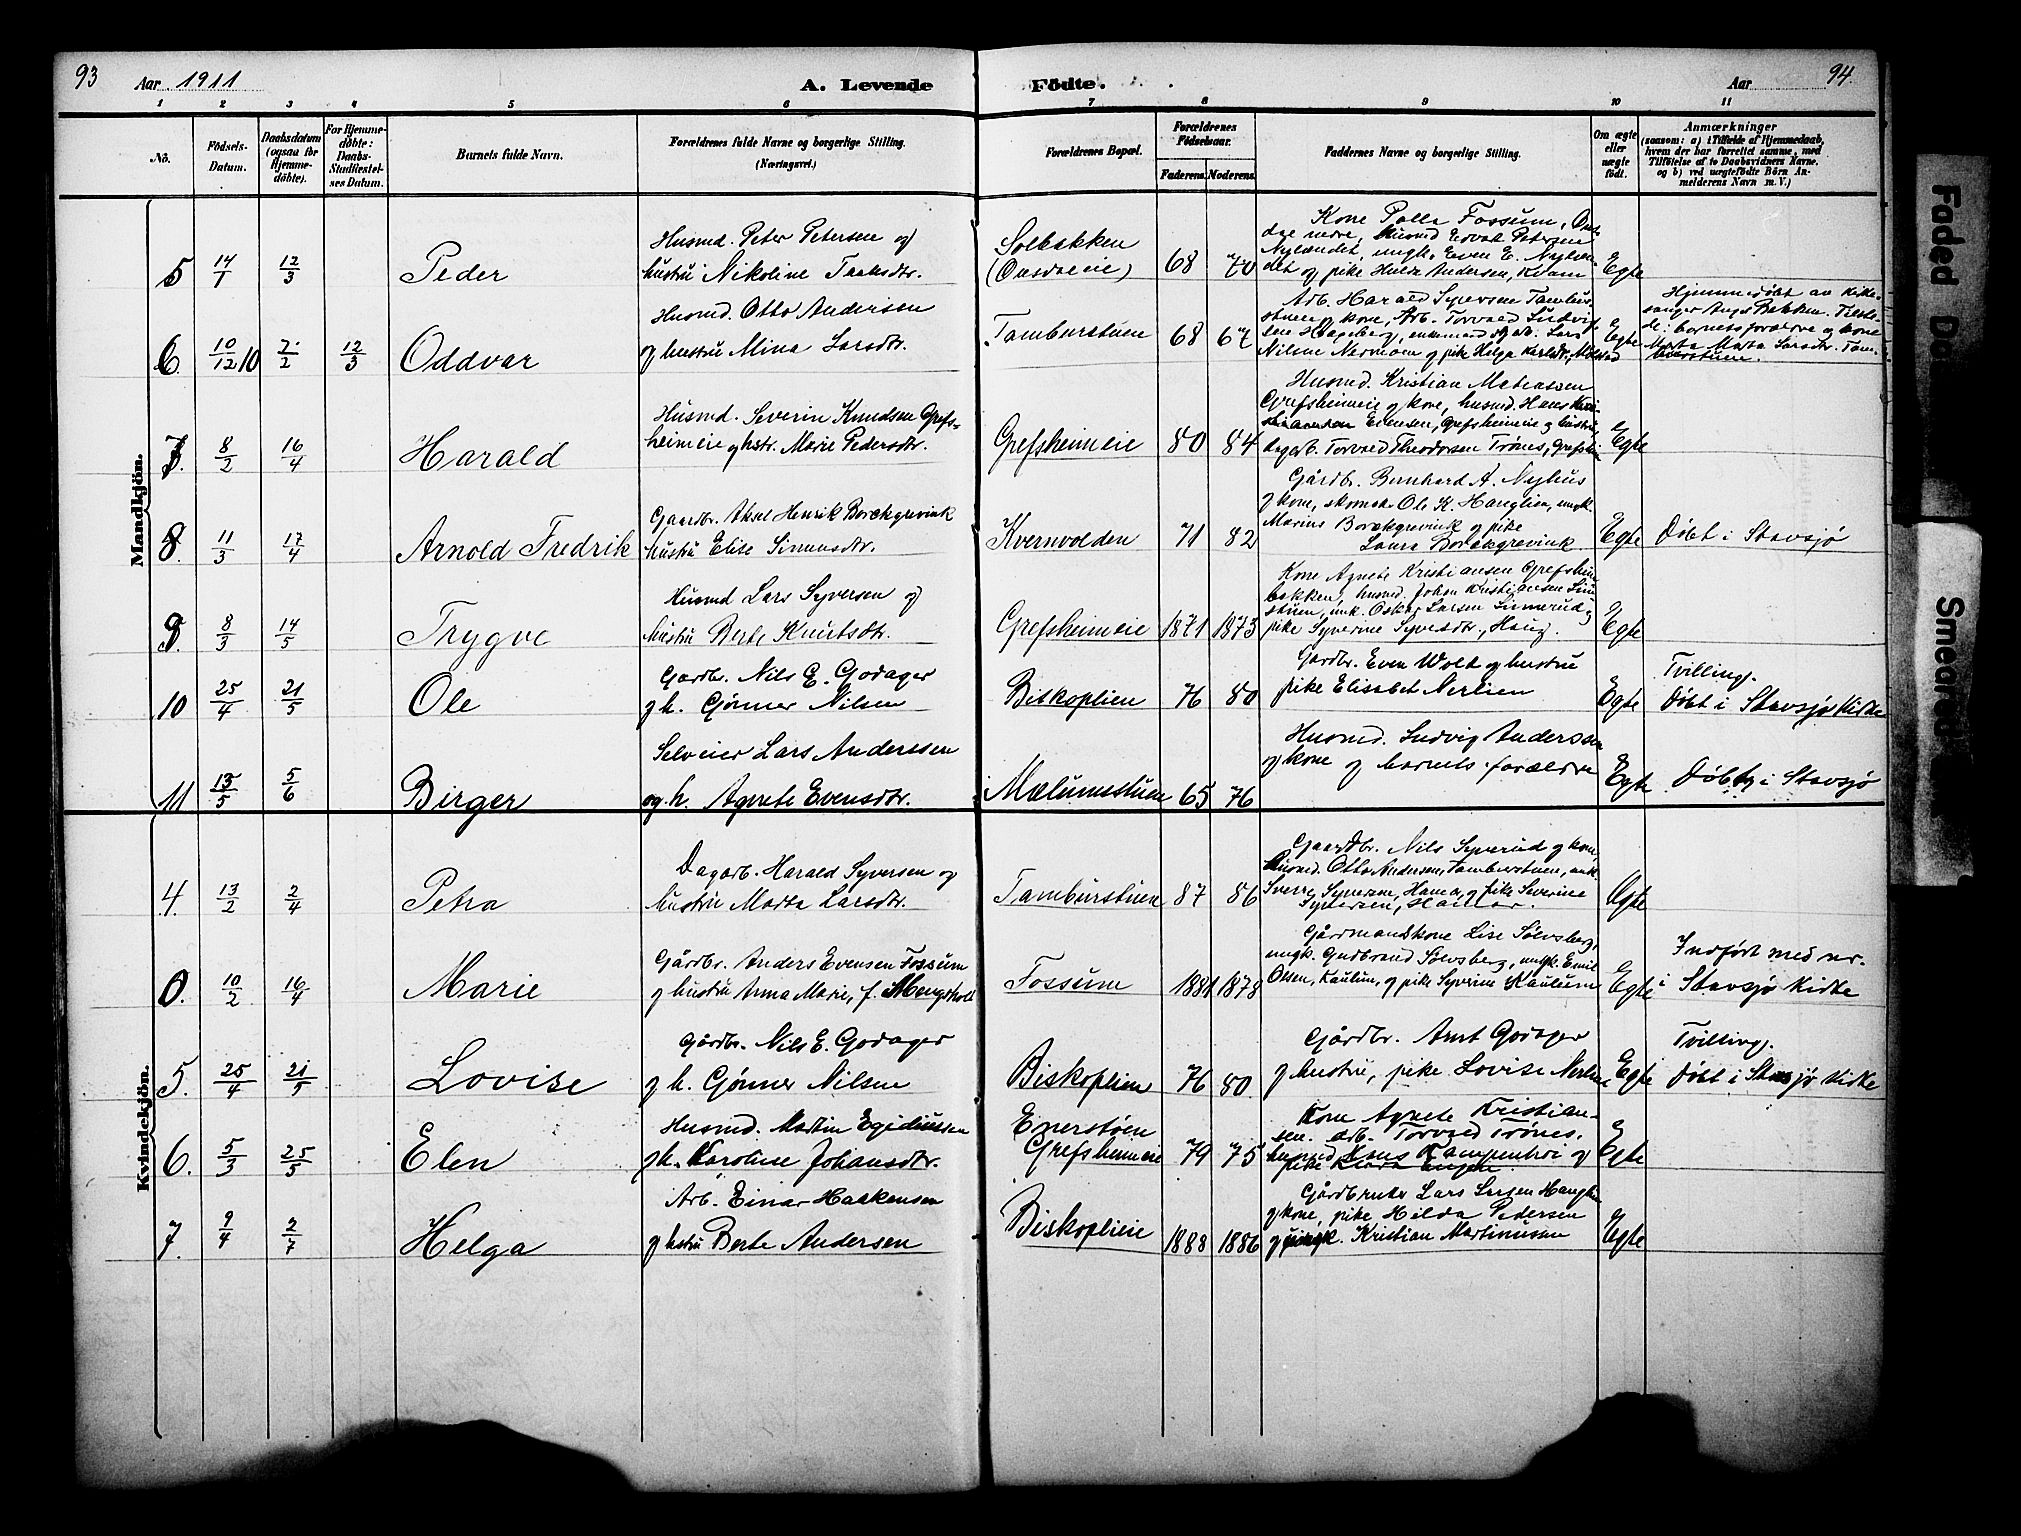 93 Aar 1911 A. Levende Födte. Aar 94.
1 2 3 4 5 6 7 8 9 10 11
No. Födsels-Datum. Daabsdatum (ogsaa for Hjemmedöbte). For Hjemmedöbte: Daabs-Stadfæstelses Datum. Barnets fulde Navn. Forældrenes fulde Navne og borgerlige Stilling. (Næringsvei.) Forældrenes Bopæl. Forældrenes Födselsaar. Faderens. Moderens. Faddernes Navne og borgerlige Stilling. Om ægte eller uægte födt. Anmærkninger
(saasom: a) i Tilfælde af Hjemmedaab, hvem der har forrettet samme, med Tilföielse af to Daabsvidners Navne, og b) ved uægtefödte Börn Anmelderens Navn m. V.)
Mandkjön.
5 14/1 12/3 Peder
Husmd. Peter Petersen og
hustru Nikoline
Solbakken
68 70
Kone Palla Fossum,
Nylændet, ungk. Even E.
og pike Hulda Andersen, Kvam
Egte
6. 10/12 10 2/2 12/3 Oddvar
Husmd. Otto Andersen
og hustru Mina Larsdtr.
Tamburstuen
68 67
Arb. Harald Syversen
og kone, Arb. Torvald Ludvig-
sen Hageberg,
Nilsen og pike Helga
Egte
Hjemmedöbt av kirke-
sanger Aug. Bakken.
barnets forældre og kone
Marta Larsdtr. Tam-
burstuen.
7. 8/2 16/4 Harald
Husmd. Severin Knudsen Grefs-
heimeie og hstr. Marie Pedersdtr.
Grefsheimeie
80 84
Husmd. Kristian Matiassen
Grefsheimeie og kone, husmd. Hans
Evensen, Grefsheimeie og hustru,
dagarb. Torvald Theodorsen Trönes,
Egte
8. 11/3 17/4 Arnold Fredrik
Gaardbr. Aksel Henrik Borckgrevink
hustru Elise Simensdtr.
Kvernvolden
71 82
Gårdbr. Bernhard A. Nyhus
og kone, skomak. Ole K. Hauglien, ungk.
Marius Borckgrevink og pike
Laura Borckgrevink.
Egte
Döbt i Stavsjö
9. 8/3 14/5 Trygve
Husmd Lars Syversen og
hustru Berte Knutsdtr.
Grefsheimeie
1871 1873
Kone Agnete Kristiansen
bakken, husmd. Johan Kristiansen
stuen, unk. Oskar Larsen
pike Syverine Syversdtr., Haug.
Egte
10 25/4 21/5 Ole
Gardbr. Nils E. Godager
og h. Gönner Nilsen
Biskoplien
76 80
Gardbr. Even Wold og hustru
pike Elisabet Nerlien
Egte
Tvilling.
Döbt i Stavsjö Kirke
11 13/5 5/6 Birger
Selveier Lars Anderssen
og h. Agnete Evensdtr.
Mælumsstuen
65 76
Husmd. Ludvig Anderssen
og kone og barnets forældre
Egte
Döbt i Stavsjö
Kvindekjön.
4. 13/2 2/4 Petra
Dagarb. Harald Syversen og
hustru Marta Larsdtr.
Tamburstuen
87 86
Gaardbr. Nils Syverud og kone,
Husmd. Otto Andersen, Tamburstuen, unk.
Sverre Syversen, Hamar, og pike Severine
Syversen, Hamar.
Egte
0. 10/2 16/4 Marie
Gårdbr. Anders Evensen Fossum
og hustru Anna Marie, f.
Fossum
1881 1878
Gårdmandskone Lise Sölvsberg,
ungk. Gudbrand Sölvsberg, ungk. Emil
Olsen, Kaulum, og pike Syverine Kaulum
Egte
Indfört med nr.
i Stavsjö Kirke
5. 25/4 21/5 Lovise
Gårdbr. Nils E. Godager
og h. Gönner Nilsen
Biskoplien
76 80
Gårdbr. Arnt Godager
og hustru, pike Lovise Nerlien
Egte
Tvilling.
döbt i Stavsjö kirke
6. 5/3 25/5 Elen
Husmd. Martin Egidiussen
og h. Karoline Johansdtr.
Enerstöen
Grefsheimeie
79 75
Kone Agnete Kristian-
sen. arb. Torvald Trönes.
husmd og
pike Klara Engen.
Egte
7. 9/4 2/7 Helga
Arb. Einar Haakensen
og hstru Berte Andersen
Biskoplieie
1888 1886
Gårdbruker Lars Larsen
og kone, pike Hilda Pedersen
og ungk. Kristian Martinussen
Egte
Faded
Smeared